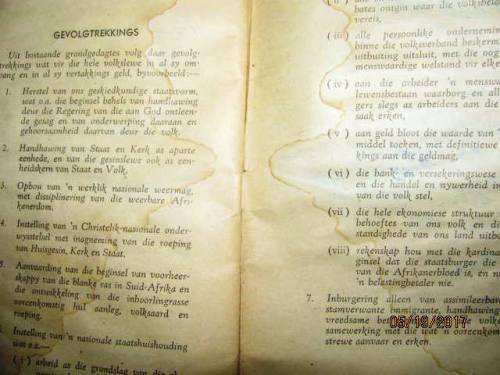 GEVOLGTREKKINGS
Uit bostaande grondgedagtes volg daar gevolg-
trekkings wat vir die hele volkslewe in al sy om-
vang en in al sy vertakkings geld, byvoorbeeld:—
1. Herstel van ons geskiedkundige staatsvorm,
wat o.a. die beginsel behels van handhawing
deur die Regering van die aan God ontleen-
de gesag en van onderwerping daaraan en
gehoorsaamheid daarvan deur die volk.
2. Handhawing van Staat en Kerk as aparte
eenhede, en van die gesinslewe ook as een-
heidskern van Staat en Volk.
3. Opbou van 'n werklik nasionale weermag,
met dissiplinering van die weerbare Afri-
kanerdom.
4. Instelling van 'n Christelik-nasionale onder-
wysstelsel met inagneming van die roeping
van Huisgesin, Kerk en Staat.
Aanvaarding van die beginsel van voorheer-
skappy van die blanke ras in Suid-Afrika en
die ontwikkeling van die inboorlingrasse
ooreenkomstig hul aanleg, volksaard en
roeping.
Instelling van 'n nasionale staatshuishouding
wat o.a.:—
(i) arbeid as die grondslag van al die
bates ontgin waar die volksbe
vereis,
(iii) alle persoonlike ondernemin
binne die volksverband beskerm
uitbuiting uitsluit, met die oog
menswaardige welstand vir elke
(iv) aan die arbeider 'n menswa
lewensbestaan waarborg en all
gers slegs as arbeiders aan die
saak erken,
(v) aan geld bloot die waarde van
middel toeken, met definitiewe
kings aan die geldmag,
(vi) die bank- en versekeringswese
en die handel en nywerheid in
van die volk stel,
(vii) die hele ekonomiese struktuur
behoeftes van ons volk en die
standighede van ons land uitbo
(viii) rekenskap hou met die kardina
ginsel dat die staatsburger die
van die Afrikanerbloed is, en ni
'n belastingbetaler nie.
7. Inburgering alleen van assimileerbar
stamverwante immigrante, handhawing
vreedsame betrekkinge met ander volke
samewerking met die wat 'n ooreenkoms
strewe aanvaar en erken.
05/18/2017